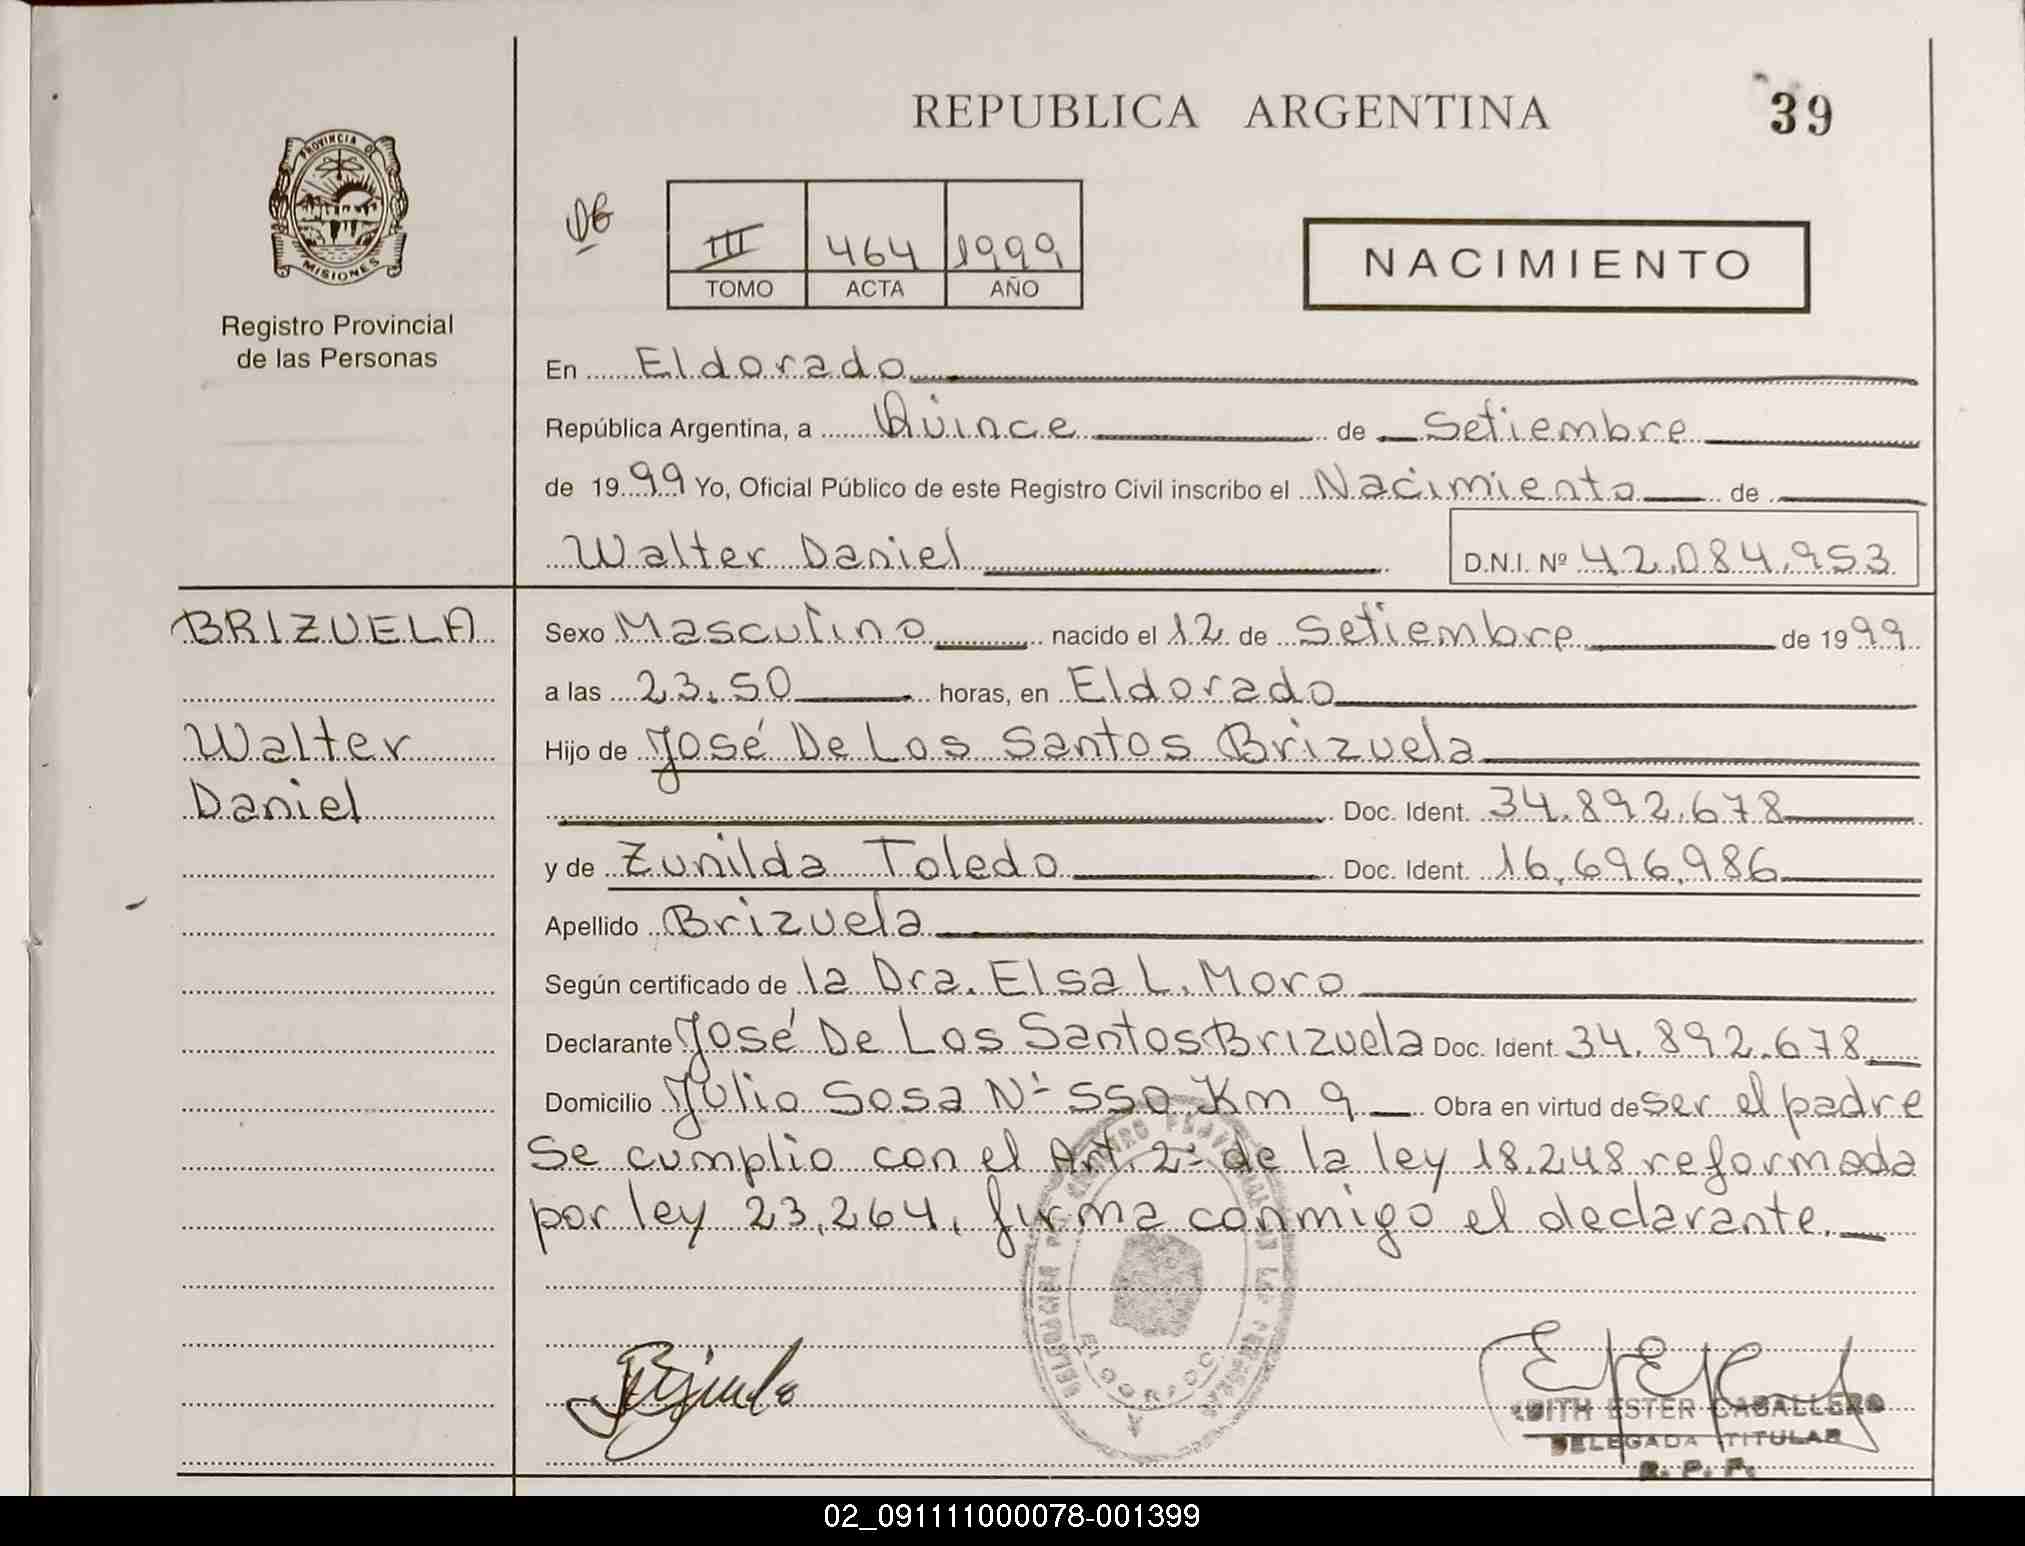 REPUBLICA ARGENTINA
39
PROVINCIA DE
MISIONES
Registro Provincial
de las Personas
III 464 1999
TOMO ACTA AÑO
NACIMIENTO
En Eldorado
República Argentina, a Quince de Setiembre
de 1999 Yo, Oficial Público de este Registro Civil inscribo el Nacimiento de
Walter Daniel D.N.I. Nº 42.084.953
BRIZUELA
Walter
Daniel
Sexo Masculino nacido el 12 de Setiembre de 1999
a las 23.50 horas, en Eldorado
Hijo de José De Los Santos Brizuela
Doc. Ident. 34.892.678
y de Zunilda Toledo Doc. Ident. 16.696.986
Apellido Brizuela
Según certificado de la Dra. Elsa L. Moro
Declarante José De Los Santos Brizuela Doc. Ident. 34.892.678
Domicilio Julio Sosa Nº 550 Km 9 Obra en virtud de ser el padre
Se cumplio con el Art. 2º de la ley 18.248 reformada
por ley 23.264, firma conmigo el declarante.
EDITH ESTER CABALLERO
DELEGADA TITULAR
R. P. P.
02_091111000078-001399